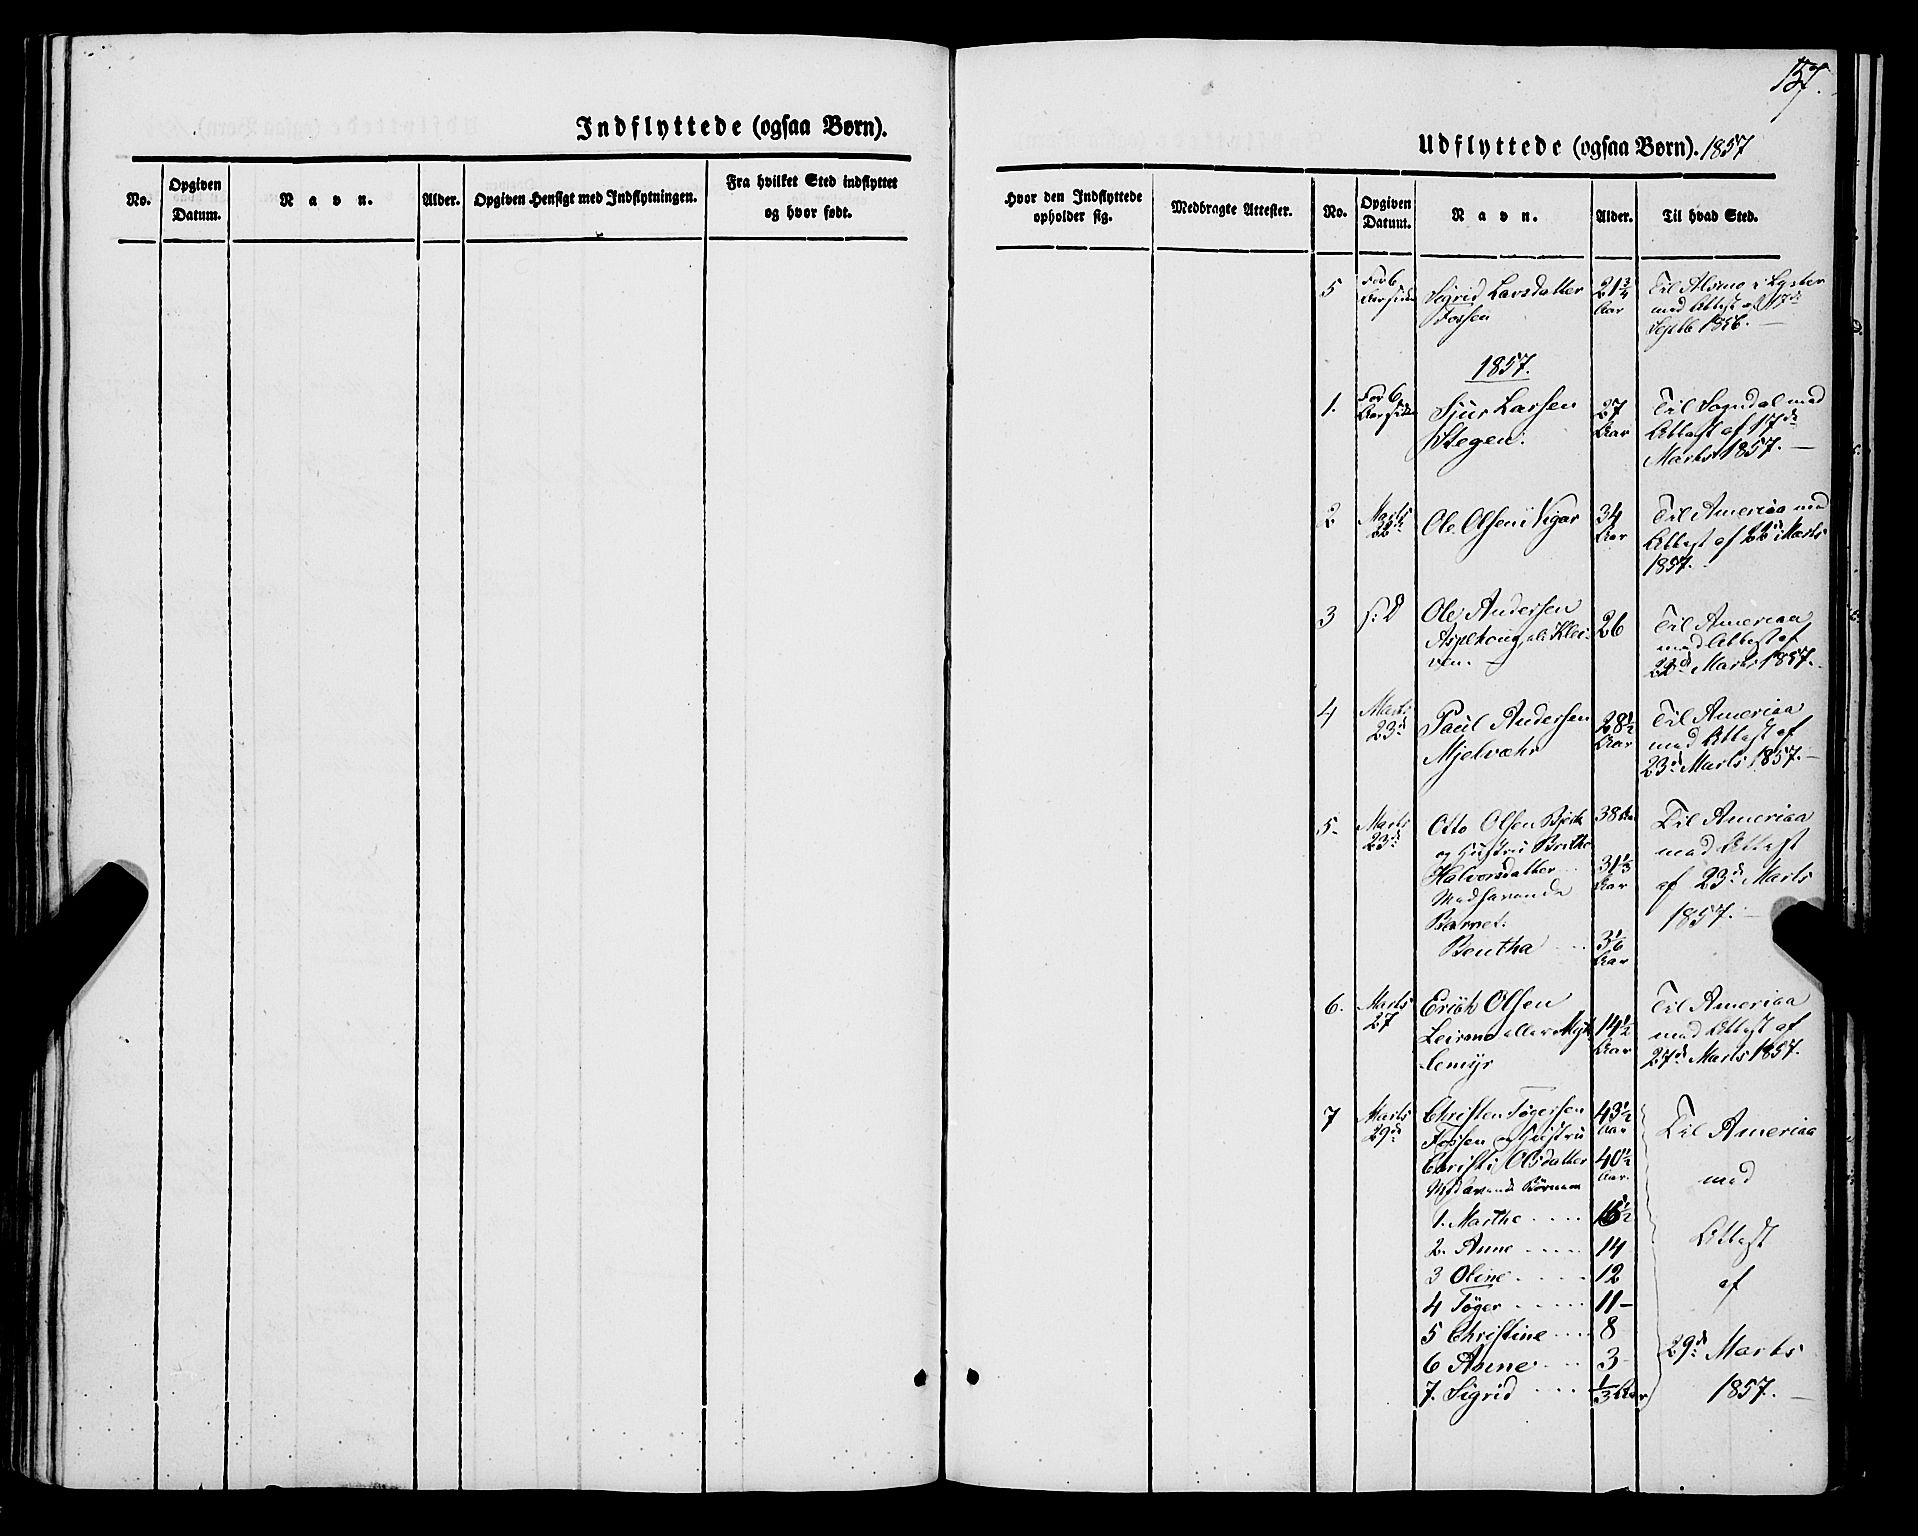 157.
Indflyttede (ogsaa Børn).
No.
Opgiven
Datum.
Navn.
Alder.
Opgiven Hensigt med Indflytningen.
Fra hvilket Sted indflyttet
og hvor født.
Udflyttede (ogsaa Børn). 1857
Hvor den Indflyttede
opholder sig.
Medbragte Attester.
No.
Opgiven
Datum.
Navn.
Alder.
Til hvad Sted.
5
For 6
Aar siden
Sigrid Larsdatter
Fossen
21 3/4
Aar
Til Alsmo i Lyster
med Attest af 17de
Septb 1856. —
1857.
1.
For 6
Aar siden
Sjur Larsen
Stegen.
27
Aar
Til Sogndal med
Attest af 17de
Marts 1857. —
2
Marts
22de
Ole Olsen Vigar
34
Aar
Til America med
Attest af 22de Marts
1857.
3
s: D
Ole Andersen
Asplhoug, el: Klei-
ven. —
26
Til America
med Attest af
22de Marts 1857. —
4
Marts
23de
Paul Andersen
Mjelvæhr
28 1/2
Aar
Til America
med Attest af
23de Marts 1857. —
5-
Marts
23de
Otto Olsen Bjerk
og Hustru Brithe
Halvorsdatter
Medfarende
Barnet:
Bentha
38 Aar
31 1/3
Aar
3 1/6
Aar
Til America
med Attest
af 23de Marts
1857. —
6.
Marts
27
Erich Olsen
Leirmo eller Myk-
lemyr
14 1/2
Aar
Til America
med Attest af
27de Marts 1857.
7
Marts
29de
Christen Tøgersen
Fossen og Hustru
Christi Olsdatter
Medfarende Børnene
43 1/2
Aar
40 1/2
Aar.
1. Marthe ....
16 1/2
2. Anne ....
14
3 Oline ....
12
4 Tøger ....
11 —
5 Christine ....
8
6 Anne ....
3
7. Sigrid ....
1/3 Aar
Til America
med
Attest
af
29de Marts
1857. —